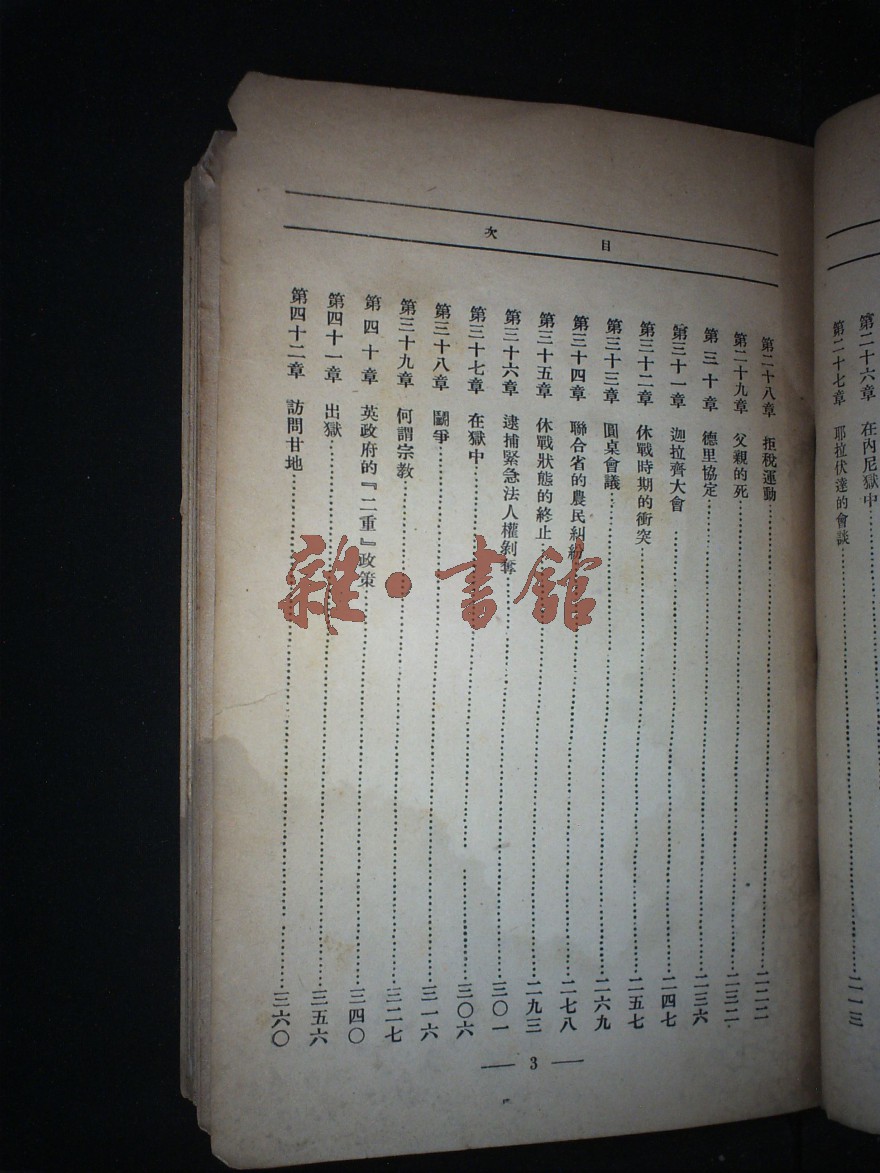 第二十六章　在內尼獄中
第二十七章　耶拉伏達的會談……二一三
目次
第二十八章　拒稅運動……二二二
第二十九章　父親的死……二三二
第三十章　德里協定……二三六
第三十一章　迦拉齊大會……二四七
第三十二章　休戰時期的衝突……二五七
第三十三章　圓桌會議……二六九
第三十四章　聯合省的農民糾紛……二七八
第三十五章　休戰狀態的終止……二九三
第三十六章　逮捕緊急法人權剝奪……三〇一
第三十七章　在獄中……三〇六
第三十八章　鬭爭……三一六
第三十九章　何謂宗教……三二七
第四十章　英政府的『二重』政策……三四〇
第四十一章　出獄……三五六
第四十二章　訪問甘地……三六〇
— 3 —
雜·書館